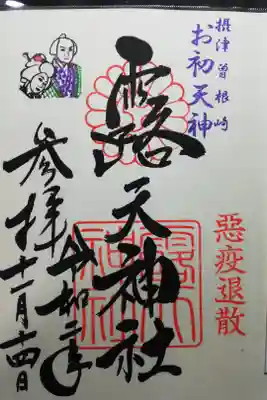 摂津曽根崎
お初天神
露天神社
惡疫退散
令和二年
参拝十一月十四日